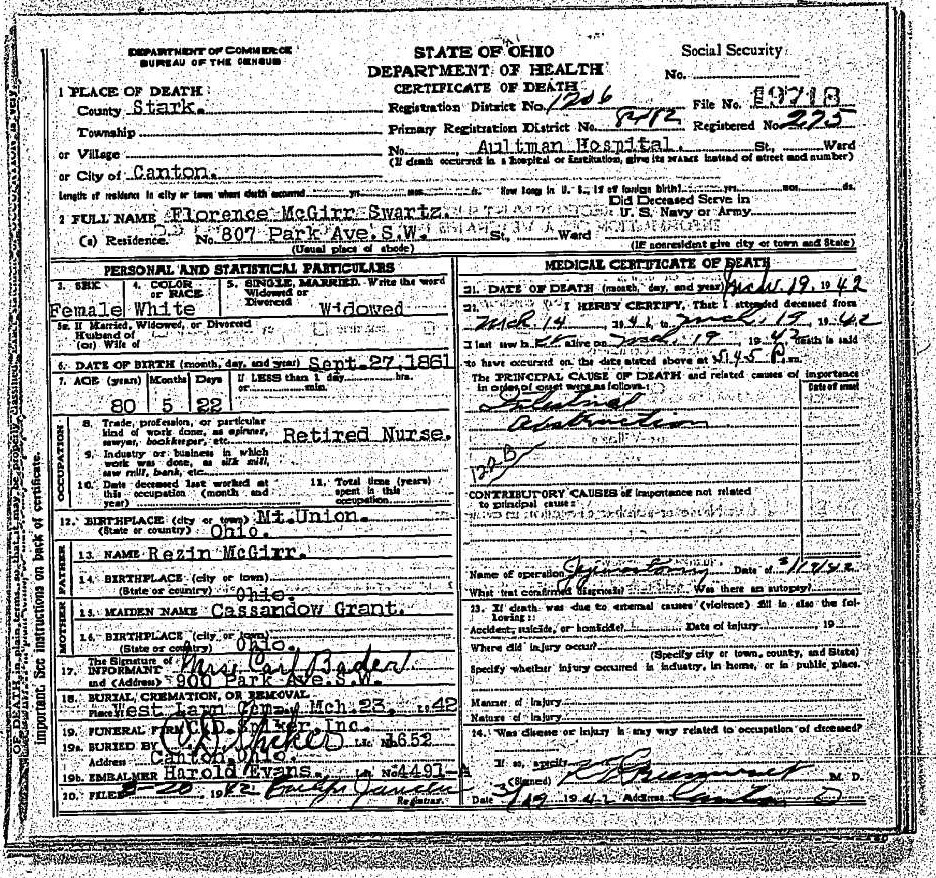 DEPARTMENT OF COMMERCE
BUREAU OF THE CENSUS
STATE OF OHIO
DEPARTMENT OF HEALTH
CERTIFICATE OF DEATH
Social Security
No.
1 PLACE OF DEATH
County Stark.
Registration District No. 1206
File No. 19718
Township
Primary Registration District No.
Registered No. 275
or Village
No. Aultman Hospital. St., Ward
(If death occurred in a hospital or institution, give its NAME instead of street and number)
or City of Canton.
Length of residence in city or town where death occurred yrs. mos. ds. How long in U. S., if of foreign birth? yrs. mos. ds.
2 FULL NAME Florence McGirr Swartz.
Did Deceased Serve in
U. S. Navy or Army
(a) Residence. No. 807 Park Ave.S.W. St., Ward
(Usual place of abode)
(If nonresident give city or town and State)
PERSONAL AND STATISTICAL PARTICULARS
3. SEX
Female
4. COLOR
or RACE
White
5. SINGLE, MARRIED. Write the word
Widowed or
Divorced
Widowed
5a. If Married, Widowed, or Divorced
Husband of
(or) Wife of
6. DATE OF BIRTH (month, day, and year) Sept.27,1861
7. AGE (years) Months Days If LESS than 1 day hrs.
or min.
80 5 22
OCCUPATION
8. Trade, profession, or particular
kind of work done, as spinner,
sawyer, bookkeeper, etc. Retired Nurse.
9. Industry or business in which
work was done, as silk mill,
saw mill, bank, etc.
10. Date deceased last worked at
this occupation (month and
year)
11. Total time (years)
spent in this
occupation
12. BIRTHPLACE (city or town) Mt.Union.
(State or country) Ohio.
FATHER
13. NAME Rezin McGirr.
14. BIRTHPLACE (city or town)
(State or country) Ohio.
MOTHER
15. MAIDEN NAME Cassandow Grant.
16. BIRTHPLACE (city or town)
(State or country) Ohio.
17. The Signature of
INFORMANT Mrs Carl Bader
and (Address) 900 Park Ave.S.W.
18. BURIAL, CREMATION, OR REMOVAL
Place West Lawn Cem. Mch.23, 1942
19. FUNERAL FIRM Inc.
19a. BURIED BY Lic. No. 1652
Address Canton,Ohio.
19b. EMBALMER Harold Evans. Lic. No. 4491-A
20. FILED 3-20 1942
Registrar.
MEDICAL CERTIFICATE OF DEATH
21. DATE OF DEATH (month, day, and year) 19 1942
22. I HERBY CERTIFY, That I attended deceased from
Mch 14, to Mch. 19, 1942
I last saw h alive on Mch. 19, 1942 death is said
to have occurred on the date stated above at 5:45 P.m.
The PRINCIPAL CAUSE OF DEATH and related causes of importance
in order of onset were as follows:
Date of onset
Intestinal
Obstruction
122B
CONTRIBUTORY CAUSES of importance not related
to principal cause:
Name of operation Date of
What test confirmed diagnosis? Was there an autopsy?
23. If death was due to external causes (violence) fill in also the fol-
lowing:
Accident, suicide, or homicide? Date of injury 19
Where did injury occur?
(Specify city or town, county, and State)
Specify whether injury occurred in industry, in home, or in public place.
Manner of injury
Nature of injury
24. Was disease or injury in any way related to occupation of deceased?
If so, specify
(Signed) M. D.
Date 3/19 1942 Address Canton O
Important. See instructions on back of certificate.